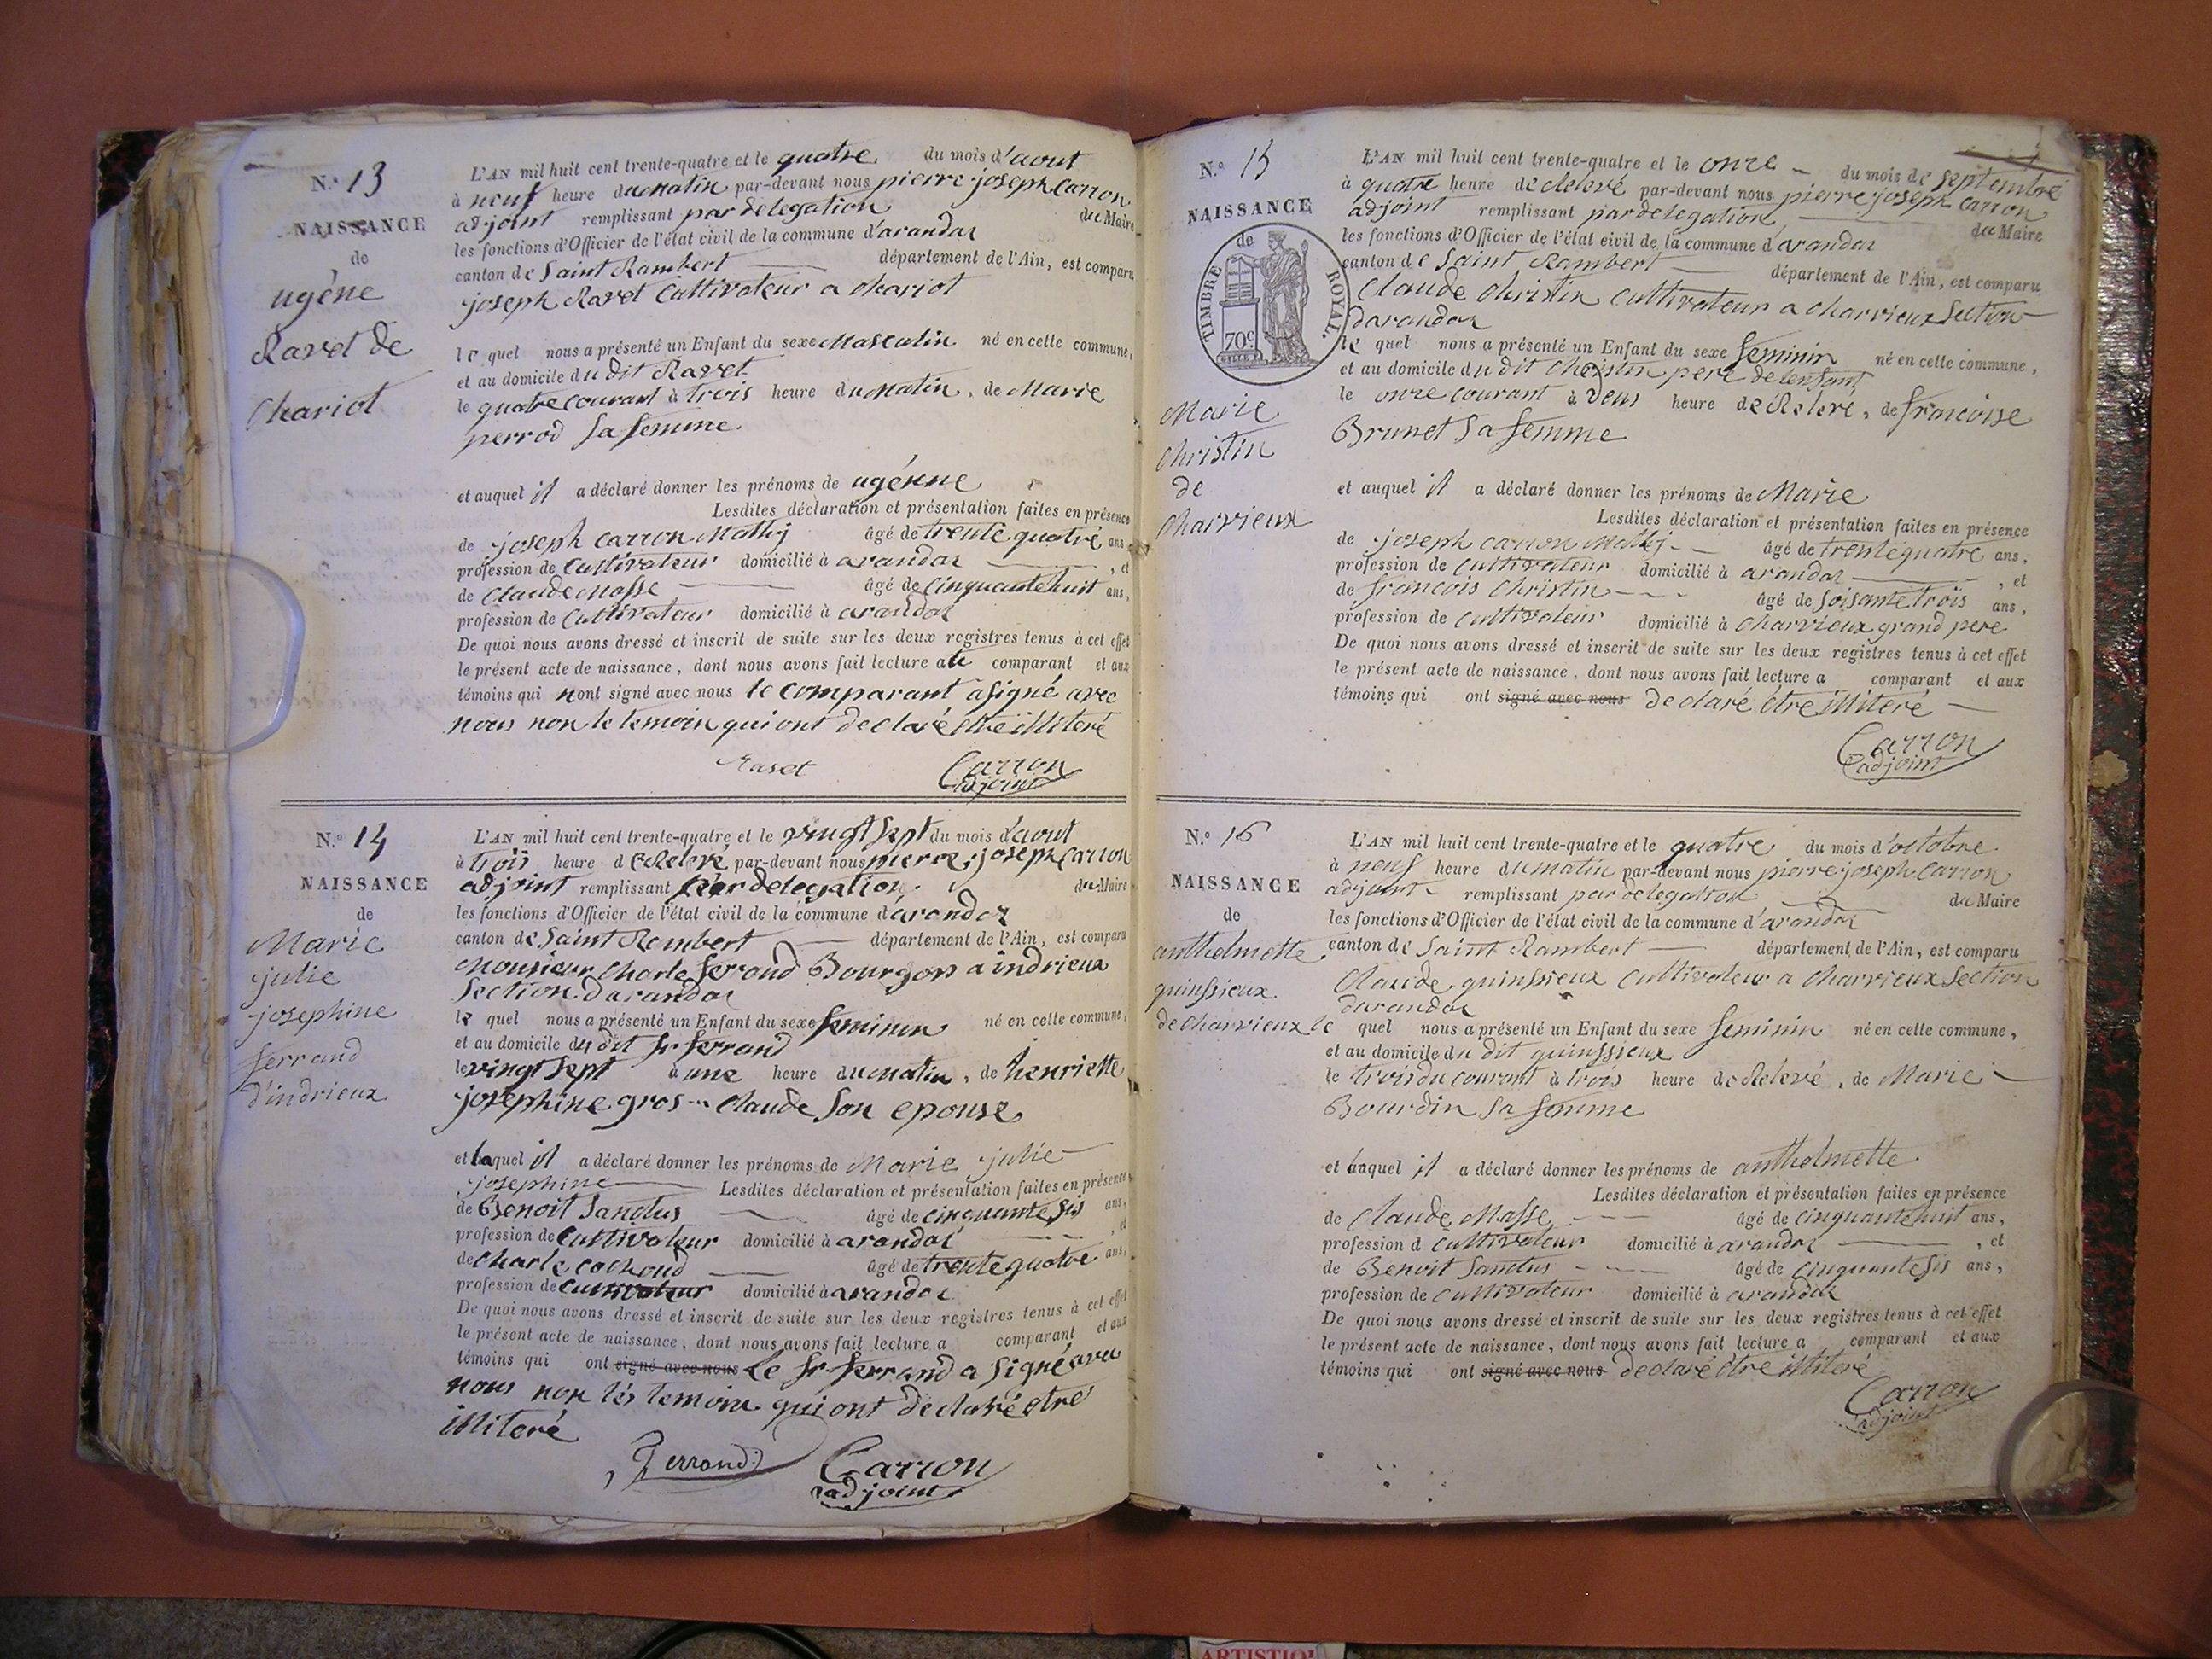 N.° 13
NAISSANCE
de
ugéne
Ravet de
Chariot
L'AN mil huit cent trente-quatre et le quatre du mois d'aout
à neuf heure du matin par-devant nous pierre joseph Carron
adjoint remplissant par delegation du Maire
les fonctions d'Officier de l'état civil de la commune d'arandas
canton de Saint Rambert département de l'Ain, est comparu
joseph Ravet Cultivateur a Chariot
le quel nous a présenté un Enfant du sexe Masculin né en cette commune,
et au domicile du dit Ravet
le quatre courant à trois heure du matin, de Marie
perrod sa femme.
et auquel il a déclaré donner les prénoms de ugénne
Lesdites déclaration et présentation faites en présence
de joseph carron Mathy âgé de trente quatre ans
profession de Cultivateur domicilié à arandas , et
de Claude Masse âgé de Cinquante huit ans,
profession de Cultivateur domicilié à arandas
De quoi nous avons dressé et inscrit de suite sur les deux registres tenus à cet effet
le présent acte de naissance, dont nous avons fait lecture a le comparant et aux
témoins qui nont signé avec nous le comparant a signé avec
nous non le temoin qui ont declaré être illiteré
Ravet Carron
adjoint
N.° 14
NAISSANCE
de
Marie
julie
josephine
ferrand
d'indrieux
L'AN mil huit cent trente-quatre et le vingt sept du mois d'aout
à trois heure de Relevé par-devant nous pierre joseph Carron
adjoint remplissant par delegation du Maire
les fonctions d'Officier de l'état civil de la commune d'arandas
canton de Saint Rambert département de l'Ain, est comparu
Monsieur Charle ferrand Bourgois a indrieux
Section darandas
le quel nous a présenté un Enfant du sexe feminin né en cette commune,
et au domicile du dit Sr ferrand
le vingt sept à une heure du matin, de henriette
josephine gros - Claude son epouse
et laquel il a déclaré donner les prénoms de Marie julie
josephine Lesdites déclaration et présentation faites en présence
de Benoit Sanctus âgé de cinquante sis ans,
profession de Cultivateur domicilié à arandas , et
de Charle cochoud âgé de trente quatre ans,
profession de Cultivateur domicilié à arandas
De quoi nous avons dressé et inscrit de suite sur les deux registres tenus à cet effet
le présent acte de naissance, dont nous avons fait lecture a comparant et aux
témoins qui ont signé avec nous le Sr ferrand a signé avec
nous non les temoins qui ont declaré etre
illiteré
ferrand Carron
adjoint
N.° 15
NAISSANCE
de
TIMBRE ROYAL.
70c
Marie
Christin
de
Charvieux
L'AN mil huit cent trente-quatre et le onze du mois de septembre
à quatre heure de Relevé par-devant nous pierre joseph Carron
adjoint remplissant par delegation du Maire
les fonctions d'Officier de l'état civil de la commune d'arandas
canton de Saint Rambert département de l'Ain, est comparu
Claude Christin Cultivateur a Charvieux Section
darandas
le quel nous a présenté un Enfant du sexe feminin né en cette commune,
et au domicile du dit Christin pere de lenfant
le onze courant à deus heure de Relevé, de francoise
Brunet sa femme
et auquel il a déclaré donner les prénoms de Marie
Lesdites déclaration et présentation faites en présence
de joseph carron Mathy âgé de trente quatre ans,
profession de Cultivateur domicilié à arandas , et
de francois Christin âgé de soisante trois ans,
profession de Cultivateur domicilié à Charvieux grand pere
De quoi nous avons dressé et inscrit de suite sur les deux registres tenus à cet effet
le présent acte de naissance, dont nous avons fait lecture a comparant et aux
témoins qui ont signé avec nous declaré être illiteré
Carron
adjoint
N.° 16
NAISSANCE
de
anthelmette
quinssieux
de charvieux
L'AN mil huit cent trente-quatre et le quatre du mois d'octobre
à neuf heure du matin par-devant nous pierre joseph Carron
adjoint remplissant par delegation du Maire
les fonctions d'Officier de l'état civil de la commune d'arandas
canton de Saint Rambert département de l'Ain, est comparu
Claude quinssieux Cultivateur a Charvieux Section
darandas
le quel nous a présenté un Enfant du sexe feminin né en cette commune,
et au domicile du dit quinssieux
le trois du courant à trois heure de Relevé, de Marie
Bourdin sa femme
et laquel il a déclaré donner les prénoms de anthelmette
Lesdites déclaration et présentation faites en présence
de Claude Masse âgé de cinquante huit ans,
profession d Cultivateur domicilié à arandas , et
de Benoit Sanctus âgé de cinquante sis ans,
profession de Cultivateur domicilié à arandas
De quoi nous avons dressé et inscrit de suite sur les deux registres tenus à cet effet
le présent acte de naissance, dont nous avons fait lecture a comparant et aux
témoins qui ont signé avec nous declaré être illiteré
Carron
adjoint